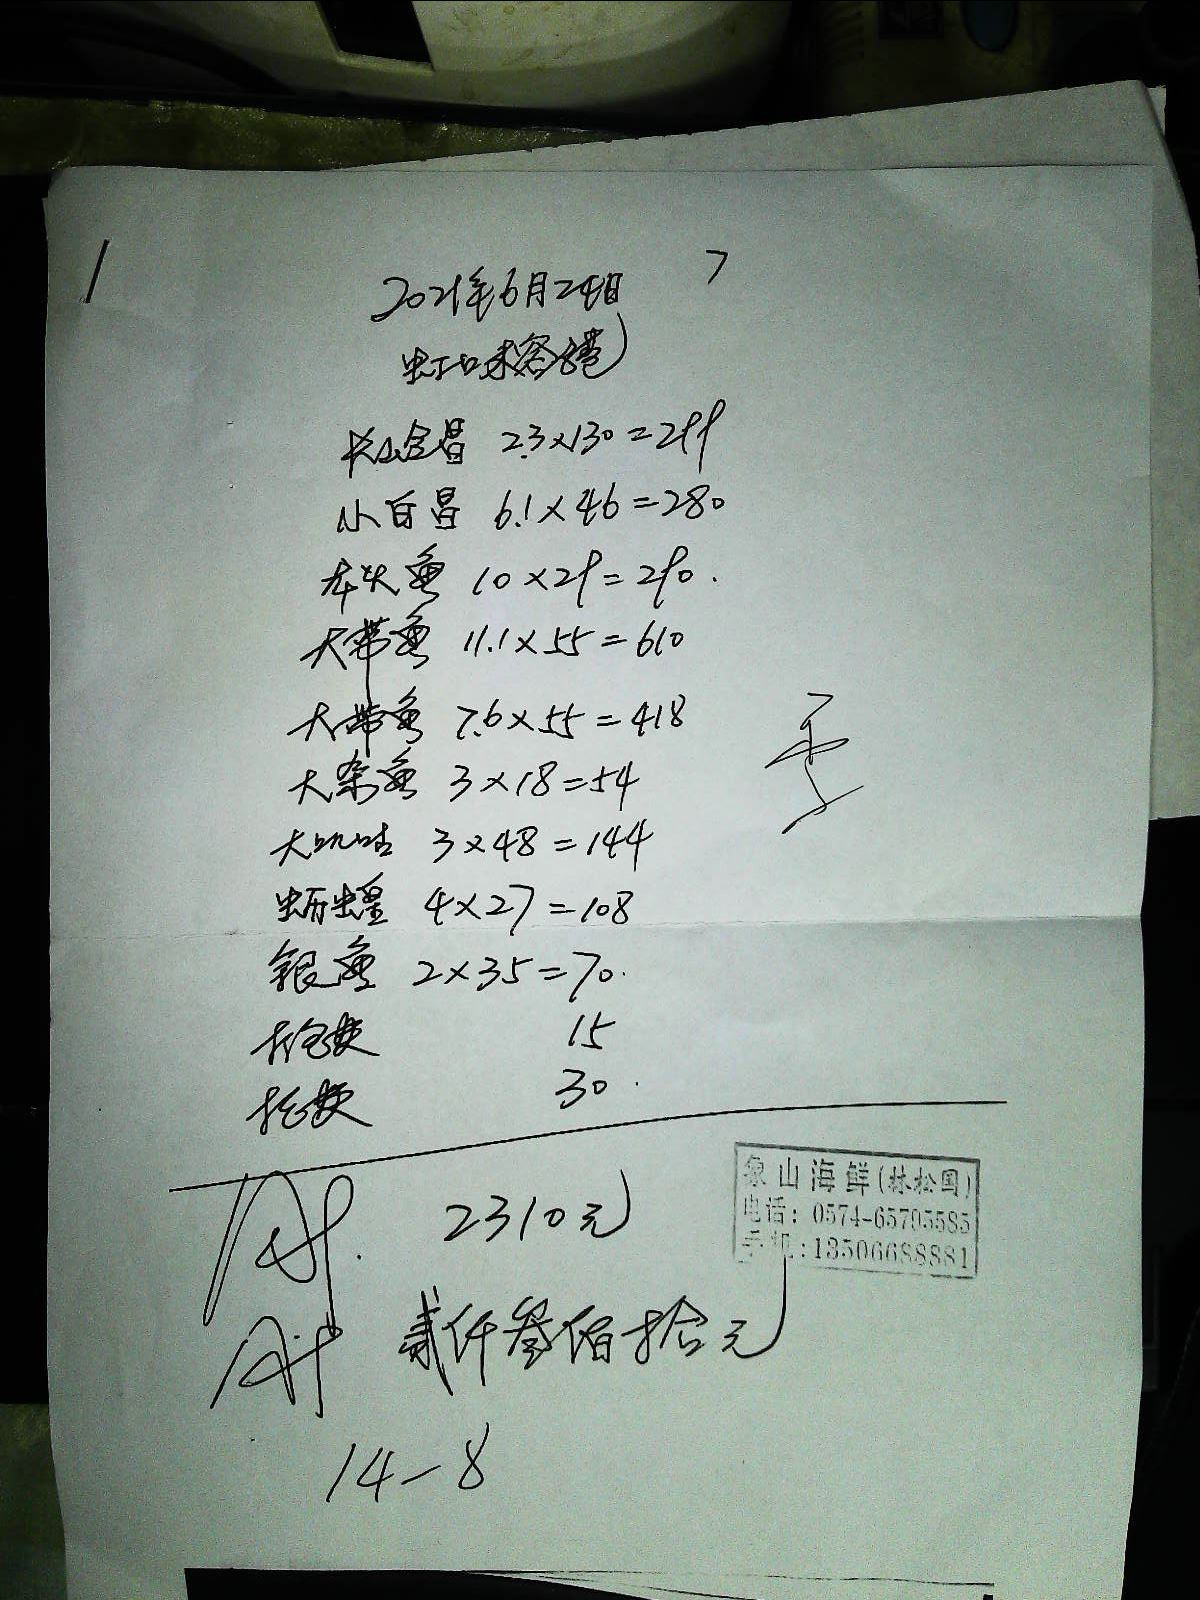 2021年6月24日
7
虹口来客隆
长山仓昌 2.3×130=299
小白昌 6.1×46=280
龙头鱼 10×29=290.
大带鱼 11.1×55=610
大带鱼 7.6×55=418
大杂鱼 3×18=54
大 3×48=144
4×27=108
银鱼 2×35=70.
15
30.
2310元
贰仟叁佰拾元
14-8
象山海鲜(林松国)
电话: 0574-65795585
手机:13506688881